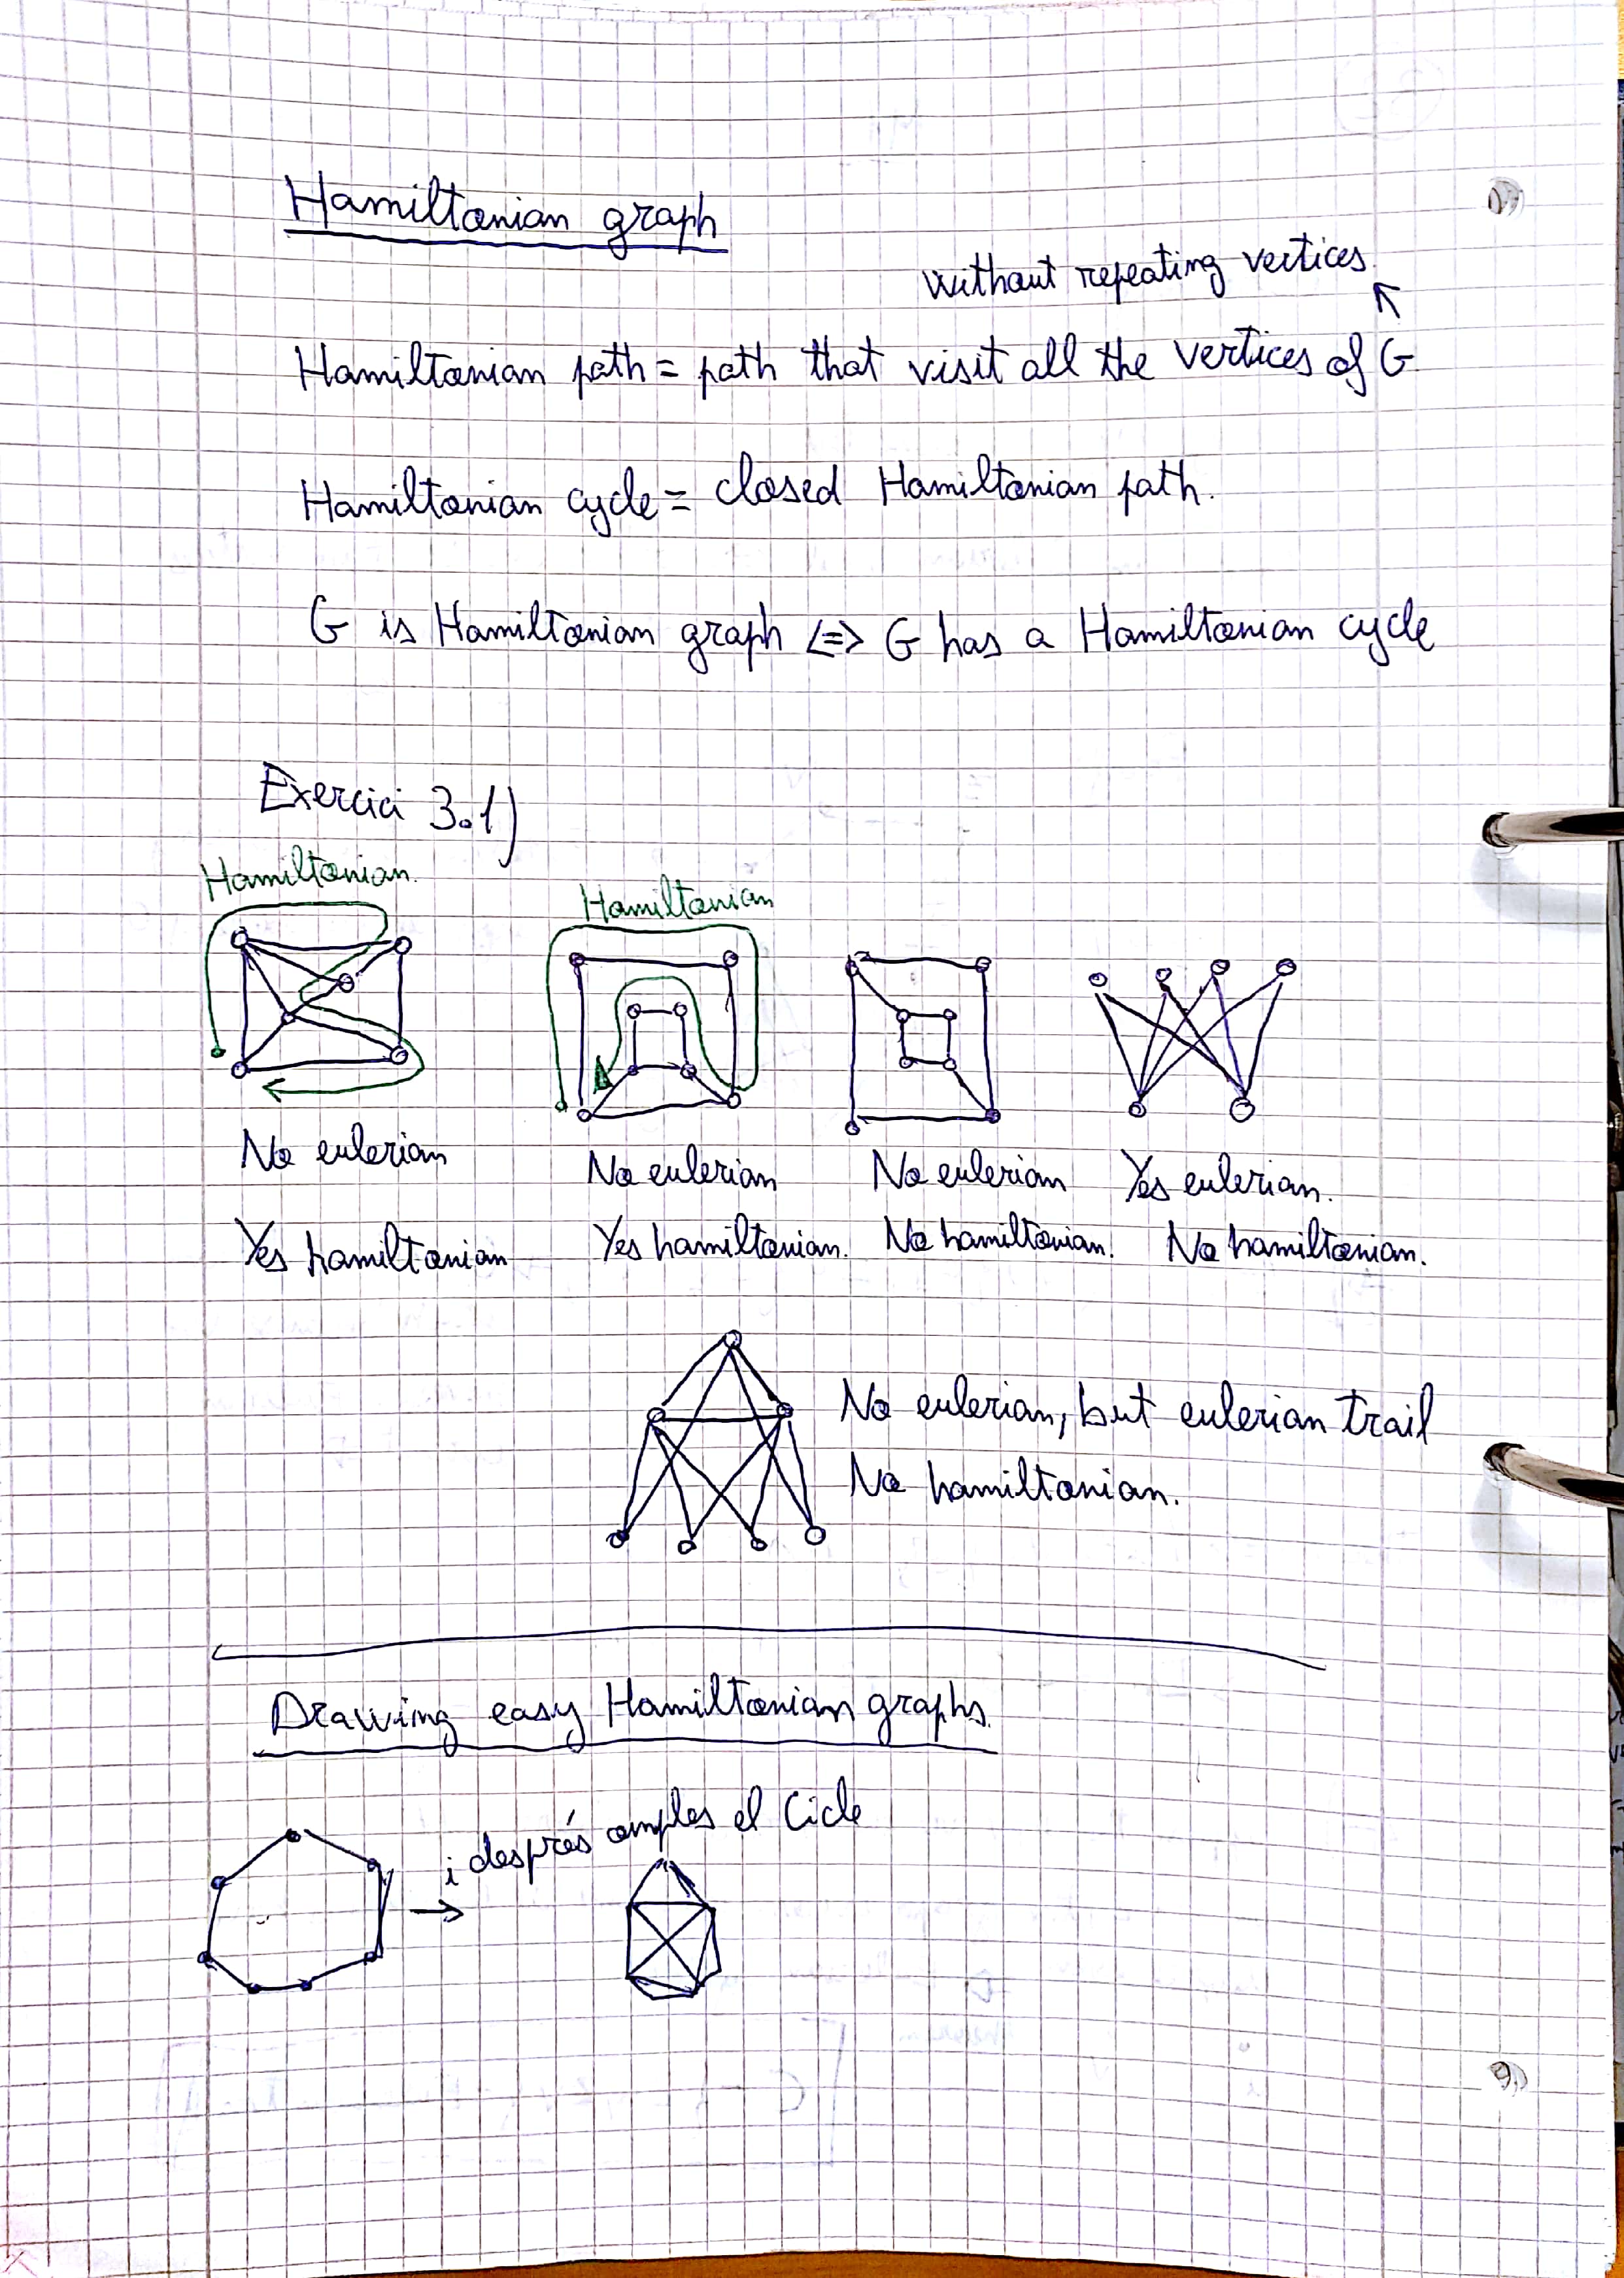 Hamiltonian graph
without repeating vertices.
Hamiltonian path = path that visit all the vertices of G
Hamiltonian cycle = closed Hamiltonian path.
G is Hamiltonian graph <=> G has a Hamiltonian cycle
Exercici 3.1)
Hamiltonian.
Hamiltonian
No eulerian No eulerian No eulerian Yes eulerian.
Yes hamiltonian Yes hamiltonian. No hamiltonian. No hamiltonian.
No eulerian, but eulerian trail
No hamiltonian.
Drawing easy Hamiltonian graphs.
i després omples el Cicle